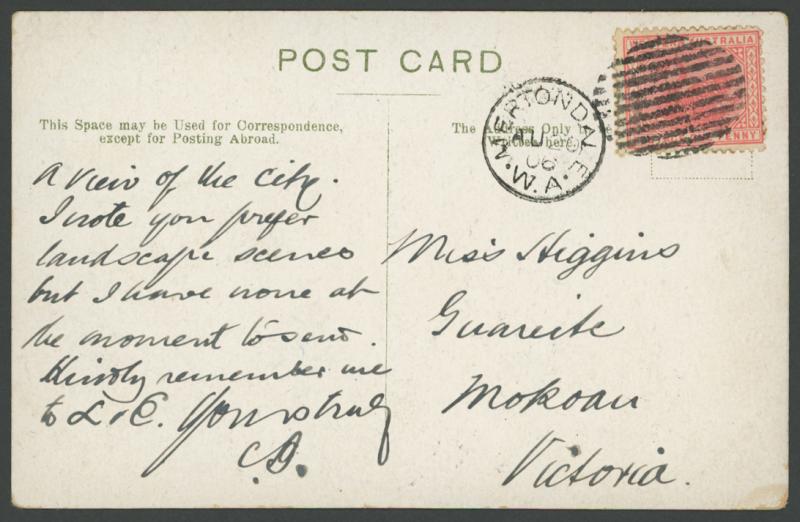 POST CARD
This Space may be Used for Correspondence,
except for Posting Abroad.
The Address Only
Written here.
MERTONDALE
AU 29
06
W.A.
AUSTRALIA
PENNY
A view of the city.
I note you prefer
landscape scenes
but I have none at
the moment to send.
Kindly remember me
to L & C. Yours truly
C.D.
Miss Higgins
Mokoan
Victoria.